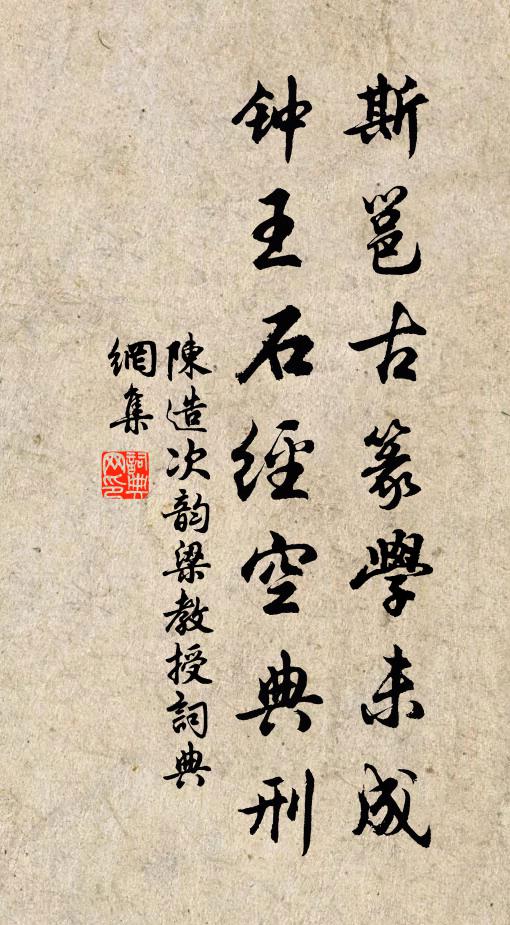 斯邕古篆學未成
钟王石經空典刑
陳造次韵梁教授詞典
網集
詞典網印